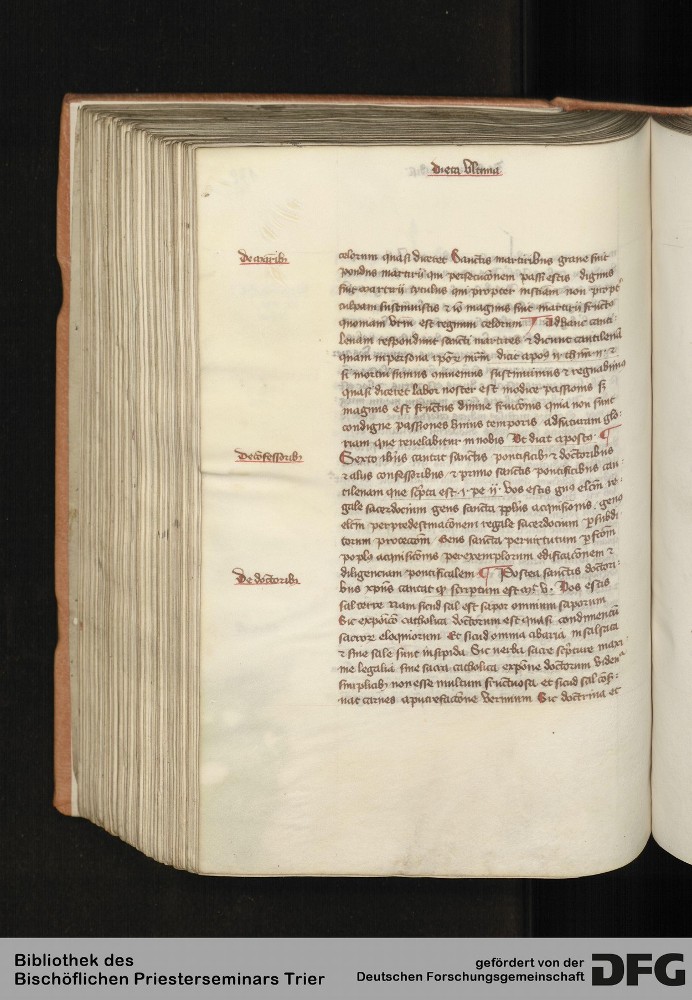 Dieta Ultima
De martiribus
celorum quasi diceret Sanctis martiribus grave fuit
pondus martirii qui persecucionem passi estis dignus
fuit martirii titulus qui propter iusticiam non propter
culpam sustinuistis et io magnus fuit martirii fructus
quoniam vestrum est regnum celorum ¶ Ad hanc canti
lenam respondunt sancti martires et dicunt cantilenam
quam in persona
si mortui sumus sustinuimus et regnabimus
quasi diceret labor noster est modice passionis sed
magnus est fructus divine fruicionis quia non sunt
condigne passiones huius temporis ad futuram glo
riam que revelabitur in nobis Ut dicit apostolus ¶
De confessoribus
Sexto ihus cantat sanctis pontificibus et doctoribus
et aliis confessoribus et primo sanctis pontificibus can
tilenam que scripta est .1. pe ii. Vos estis genus electum re
gale sacerdocium gens sancta populus acquisicionis. genus
electum per predestinacionem regale sacerdocium per subdi
torum proteccionem Gens sancta per virtutum
populus acquisicionis per exemplorum edificacionem et
diligenciam pontificalem ¶ Postea sanctis doctori
De doctoribus
bus xpus cantat quod scriptum est mt v. Vos estis
sal terre Nam sicud sal est sapor omnium saporum
Sic expositio catholica doctorum est quasi condimentum
sacrorum eloquiorum Et sicud omnia cibaria insalsata
et sine sale sunt insipida Sic verba sacre scripture maxi
me legalia sine sacra catholica expositione doctorum videntur
simplicibus non esse multum fructuosa et sicud sal conser
vat carnes a putrefactione vermium Sic doctrina et
Bibliothek des
Bischöflichen Priesterseminars Trier
gefördert von der
Deutschen Forschungsgemeinschaft
DFG